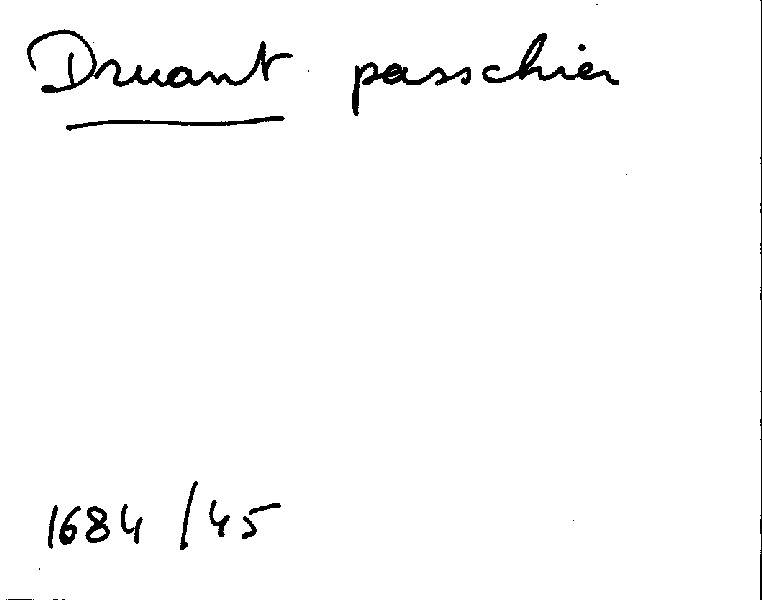 Druant passchier
1684 / 45